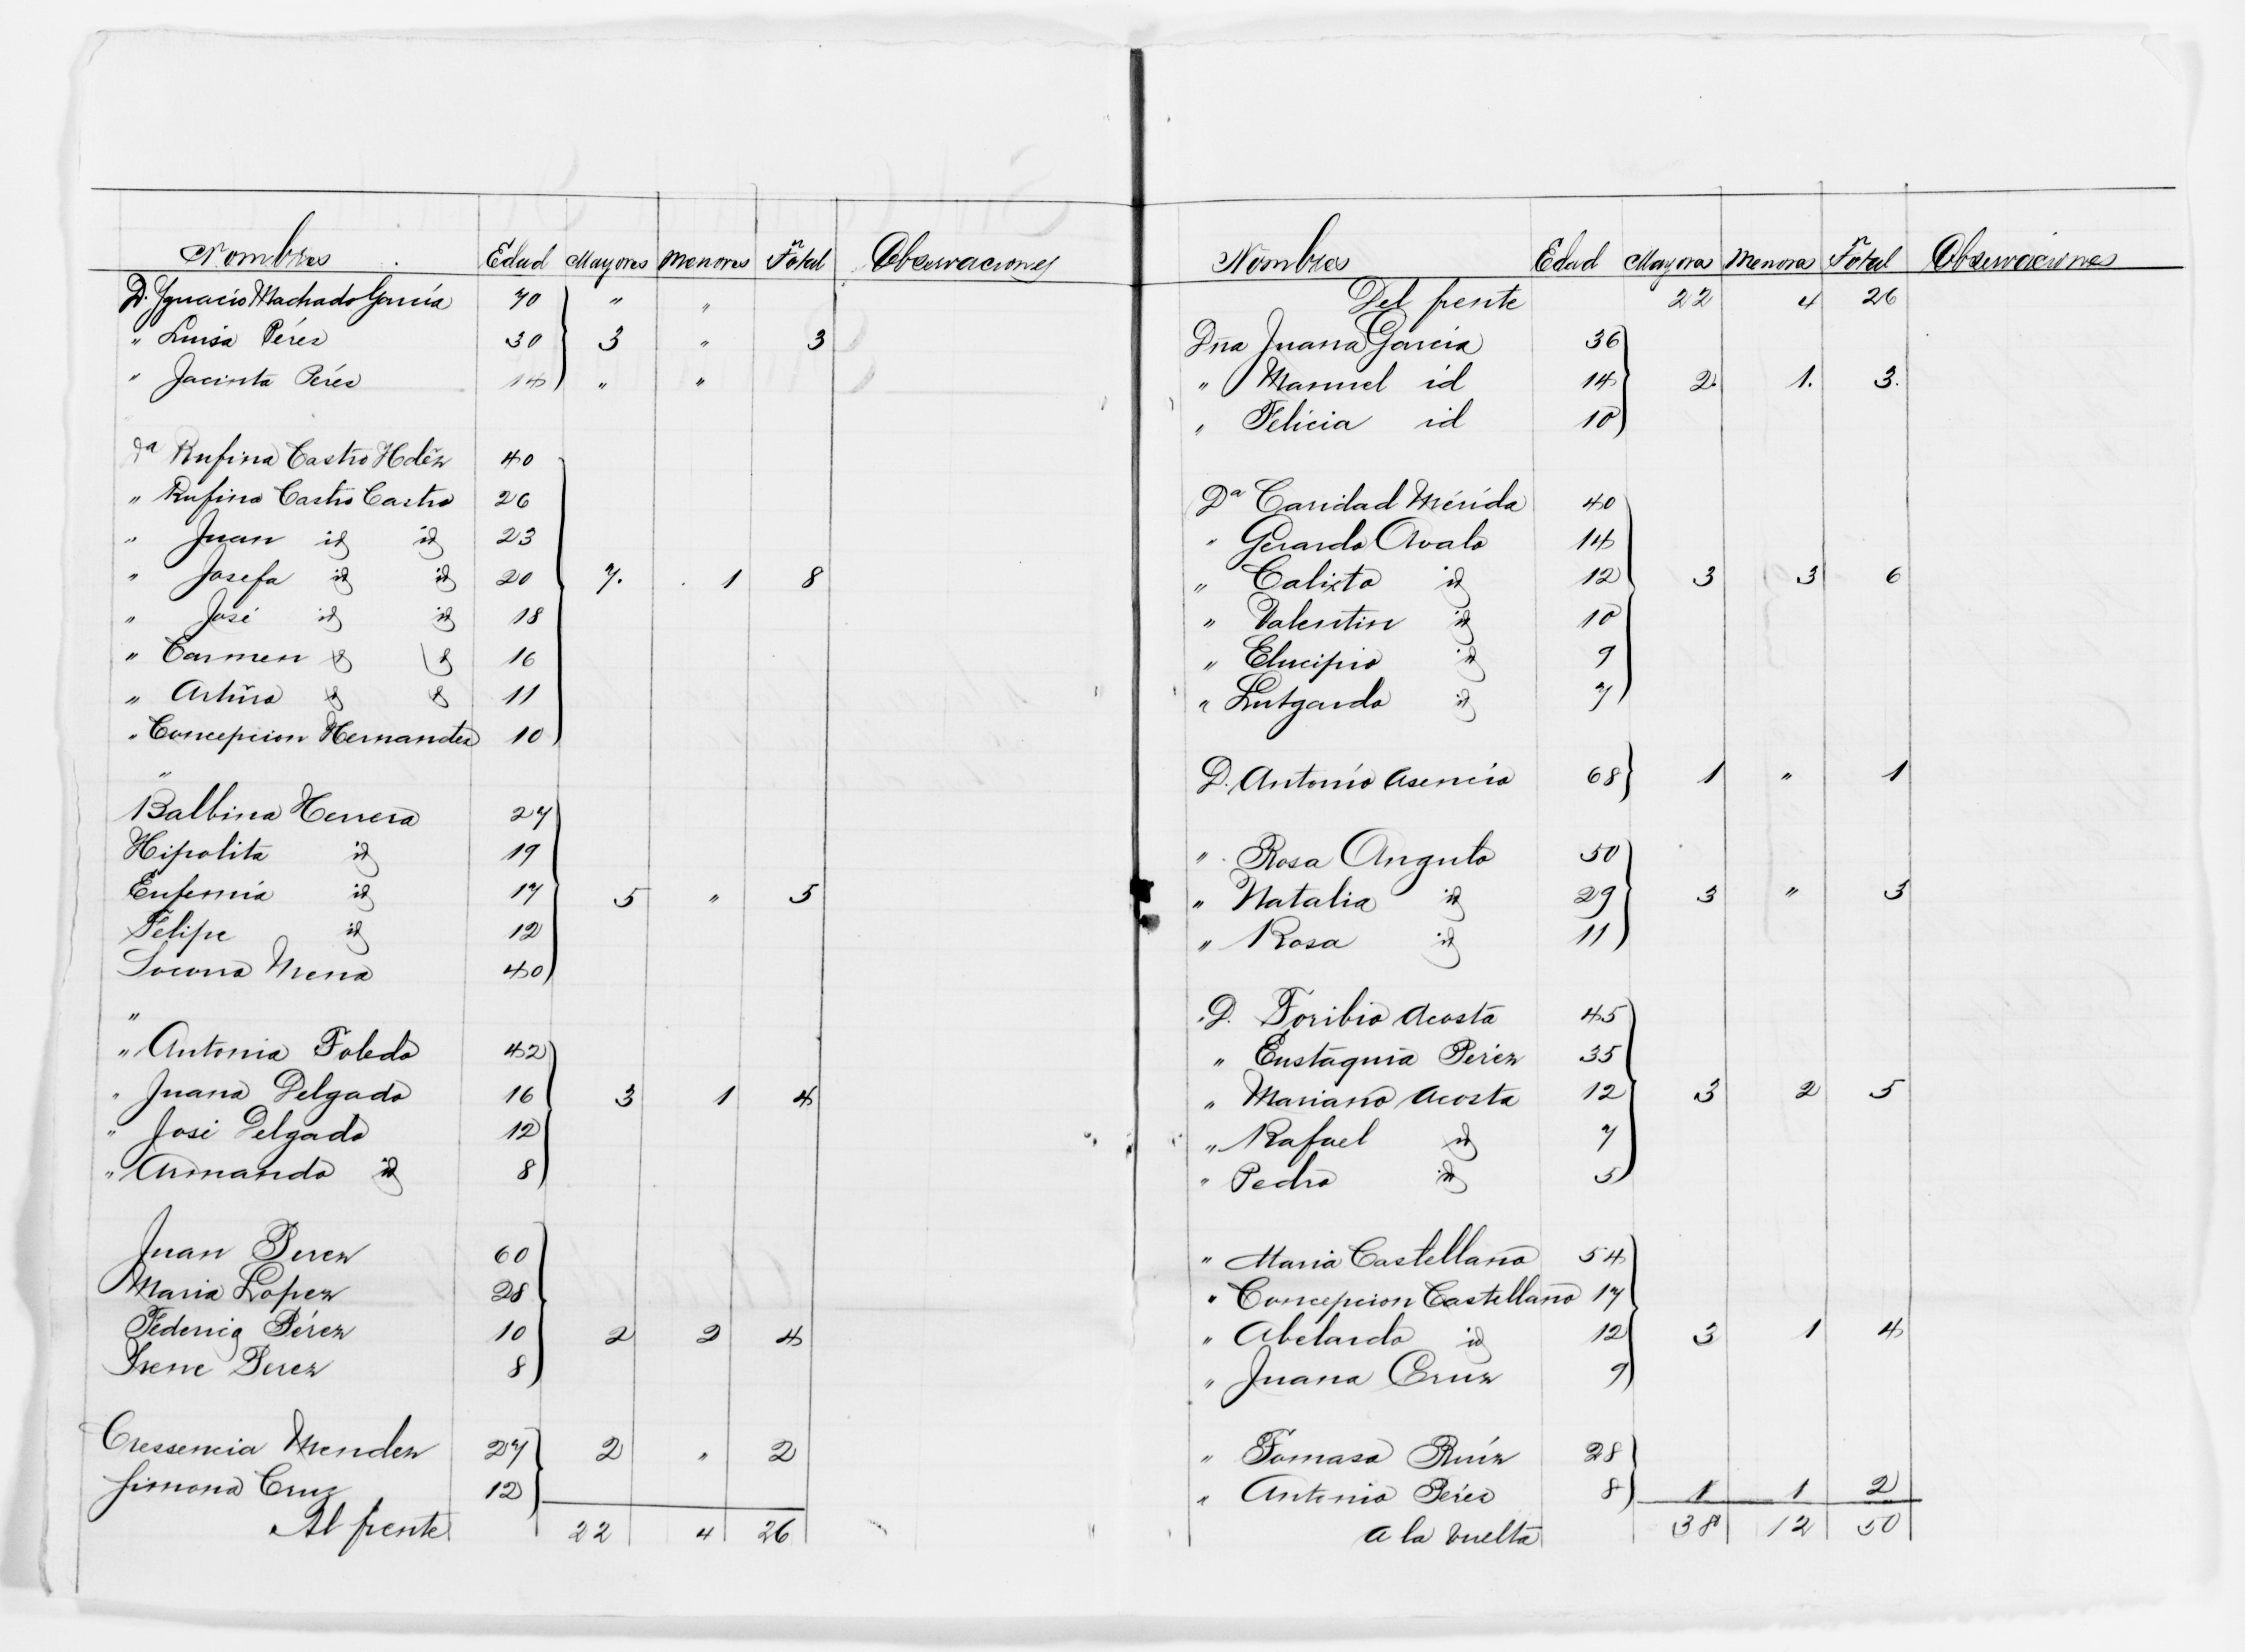 Nombres Edad Mayores Menores Total Observaciones
D. Ygnacio Machado García 70 " "
" Luisa Pérez 30 3 " 3
" Jacinta Pérez 14 " "
Da Rufina Castro Hdez 40
" Rufino Castro Castro 26
" Juan id id 23
" Josefa id id 20 7. 1 8
" José id id 18
" Carmen id id 16
" Arturo id id 11
" Concepcion Hernandez 10
"
Balbina Herrera 27
Hipolita id 19
Eufemia id 17 5 " 5
Felipe id 12
Socorro Mena 40
"
" Antonia Toledo 42
" Juana Delgado 16 3 1 4
" José Delgado 12
" Armando id 8
Juan Perez 60
Maria Lopez 28
Federico Pérez 10 2 2 4
Irene Perez 8
Cressencia Mendez 27 2 " 2
Simona Cruz 12
Al frente 22 4 26
Nombres Edad Mayores Menores Total Observaciones
Del frente 22 4 26
Dña Juana García 36
" Manuel id 14 2. 1. 3.
" Felicia id 10
Da Caridad Mérida 40
" Gerardo Avalo 14
" Calixto id 12 3 3 6
" Valentin id 10
" Elucipio id 9
" Lutgardo id 7
D. Antonio Asencio 68 1 " 1
" Rosa Angulo 50
" Natalia id 29 3 " 3
" Rosa id 11
D. Toribio Acosta 45
" Eustaquia Perez 35
" Mariano Acosta 12 3 2 5
" Rafael id 7
" Pedro id 5
" Maria Castellano 54
" Concepcion Castellano 17
" Abelardo id 12 3 1 4
" Juana Cruz 9
" Tomasa Ruíz 28
" Antonio Pérez 8 1 1 2
A la vuelta 38 12 50